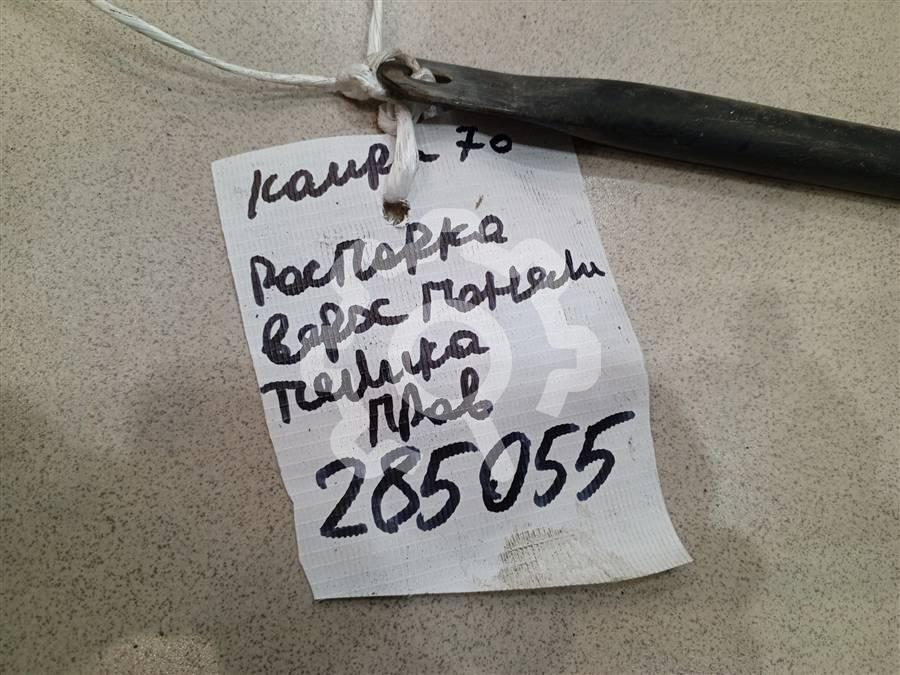 Камри 70
Распорка
верхс панели
телевика
прав
285055